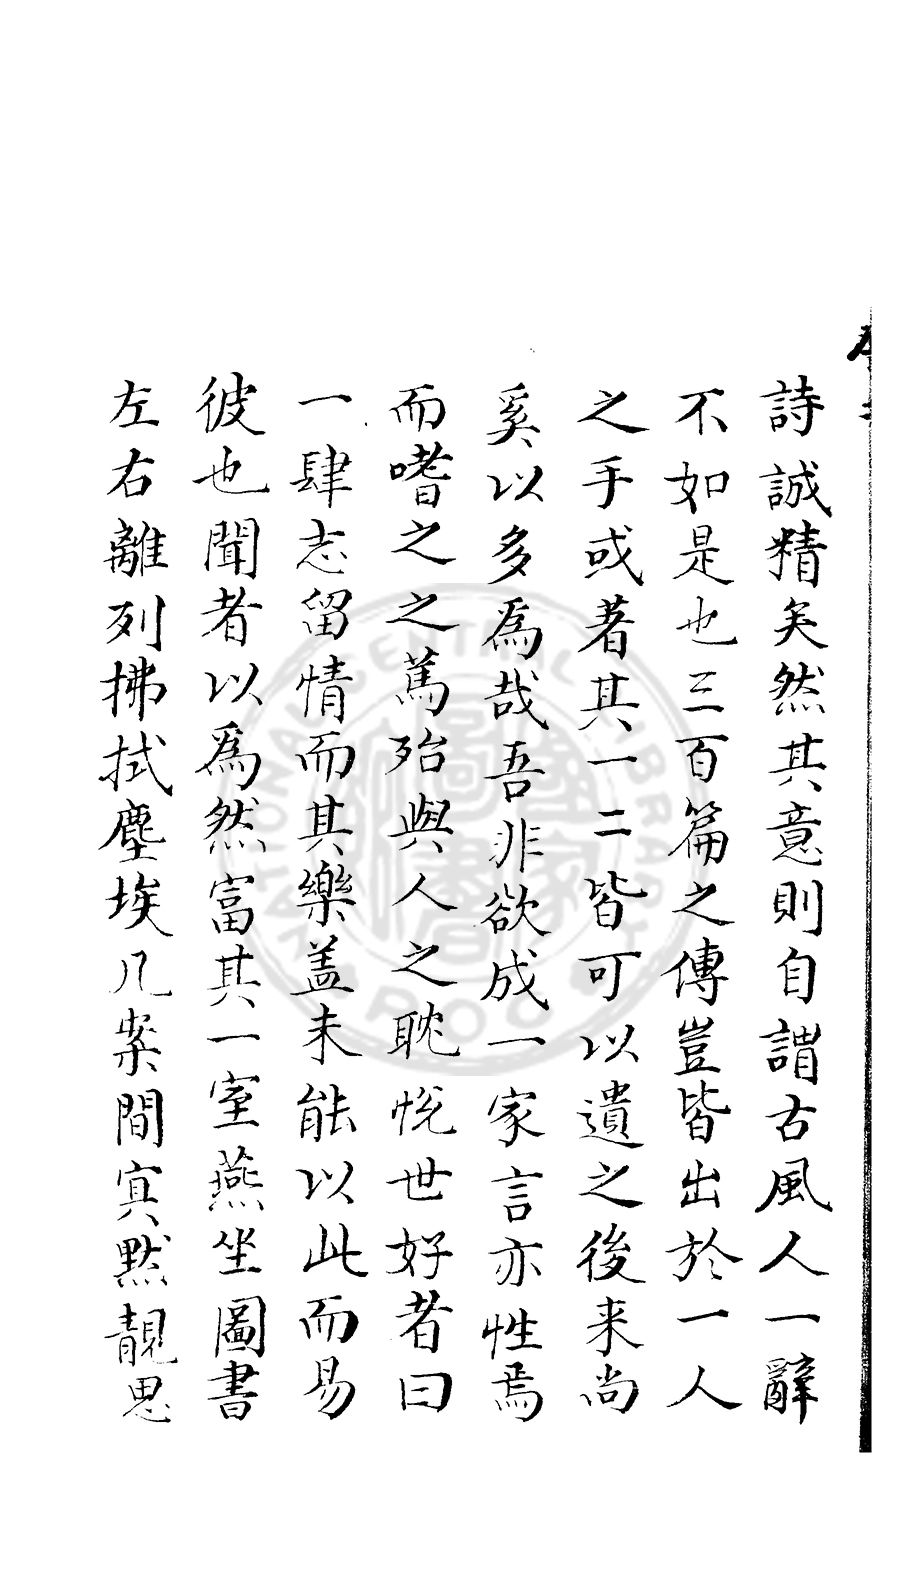 詩誠精矣然其意則自謂古風人一辭
不如是也三百篇之傳豈皆出於一人
之手或著其一二皆可以遺之後来尚
奚以多爲哉吾非欲成一家言亦性焉
而嗜之之篤殆與人之耽悅世好者曰
一肆志留情而其樂盖未能以此而易
彼也聞者以爲然富其一室燕坐圖書
左右離列拂拭塵埃几案間寘黙靚思
NATIONAL CENTRAL LIBRARY
R.O.C
國家圖書館